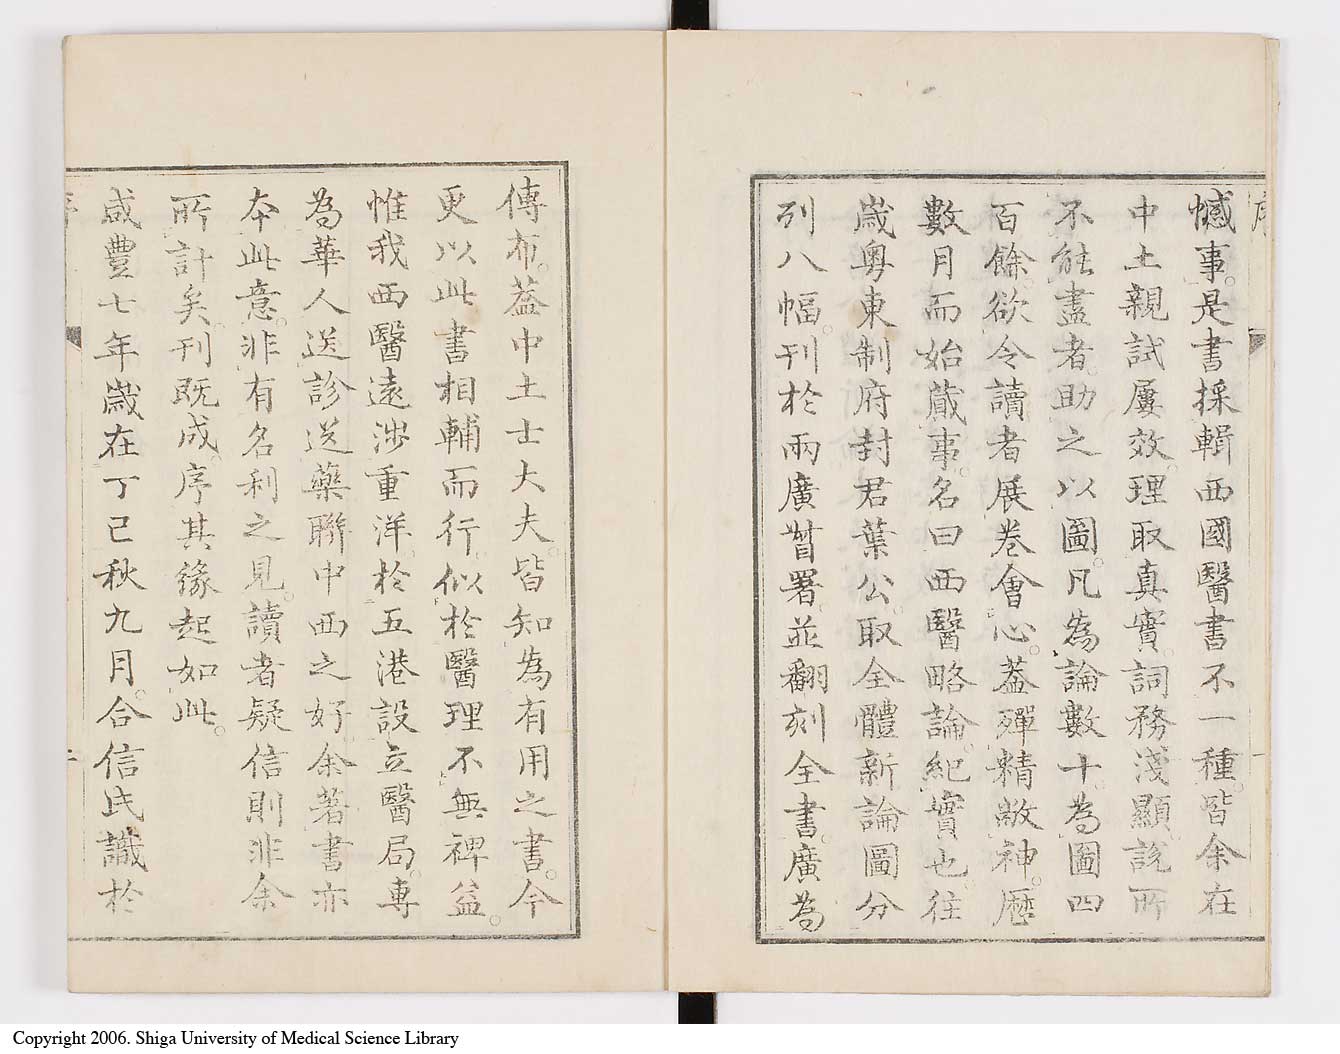 憾事。是書採輯西國醫書不一種。皆余在
中土親試屢效。理取真實。詞務淺顯。說所
不能盡者。助之以圖。凡為論數十。為圖四
百餘。欲令讀者展卷會心。蓋殫精敝神。歷
數月而始蕆事。名曰西醫略論。紀實也。往
歲粵東制府封君葉公。取全體新論圖分
列八幅。刊於兩廣督署。並翻刻全書。廣為
傳布。蓋中土士大夫。皆知為有用之書。今
更以此書相輔而行。似於醫理不無裨益。
惟我西醫遠涉重洋。於五港設立醫局。專
為華人送診送藥。聯中西之好。余著書亦
本此意。非有名利之見。讀者疑信則非余
所計矣。刊既成。序其緣起如此。
咸豐七年歲在丁巳秋九月。合信氏識於
序
Copyright 2006. Shiga University of Medical Science Library